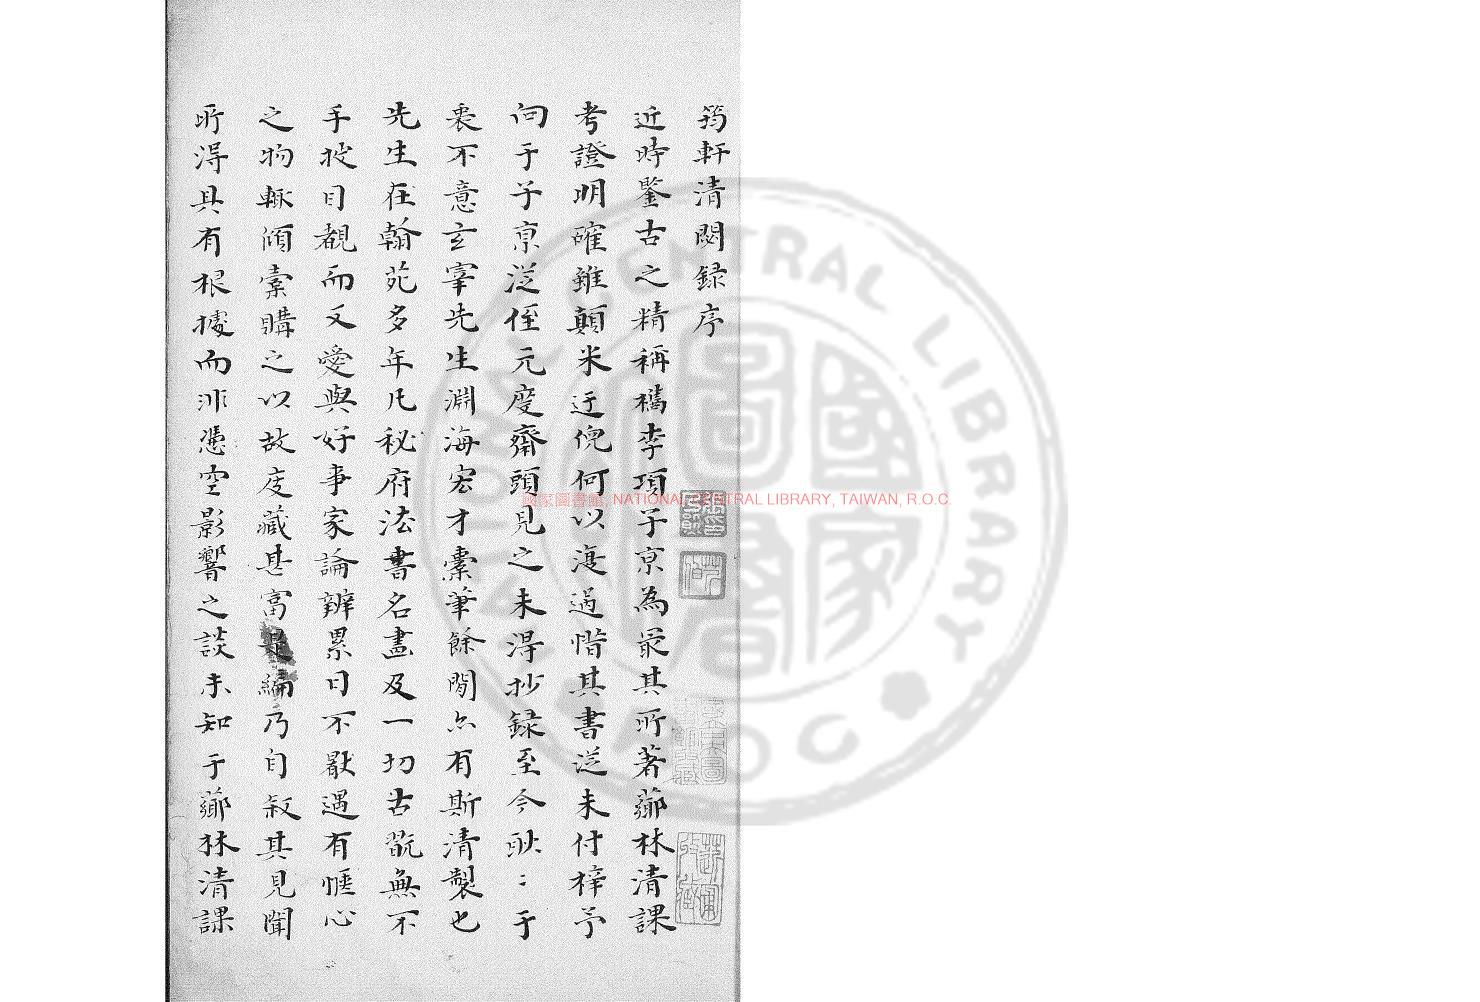 筠軒清閟録序
近時鑒古之精稱檇李項子京為最其所著蕉林清課
考證明確雖顛米迂倪何以遠過惜其書從未付梓予
向于子京從侄元度齋頭見之未得抄録至今耿〻于
衷不意玄宰先生淵海宏才橐筆餘閒亦有斯清製也
先生在翰苑多年凡秘府法書名畫及一切古翫無不
手披目覩而又愛與好事家論辨累日不厭遇有愜心
之物輒傾橐購之以故庋藏甚富是編乃自叙其見聞
所得具有根據而非憑空影響之談未知于蕉林清課
國家圖書館, NATIONAL CENTRAL LIBRARY, TAIWAN, R.O.C.
NATIONAL CENTRAL LIBRARY
ROC
國家圖書館